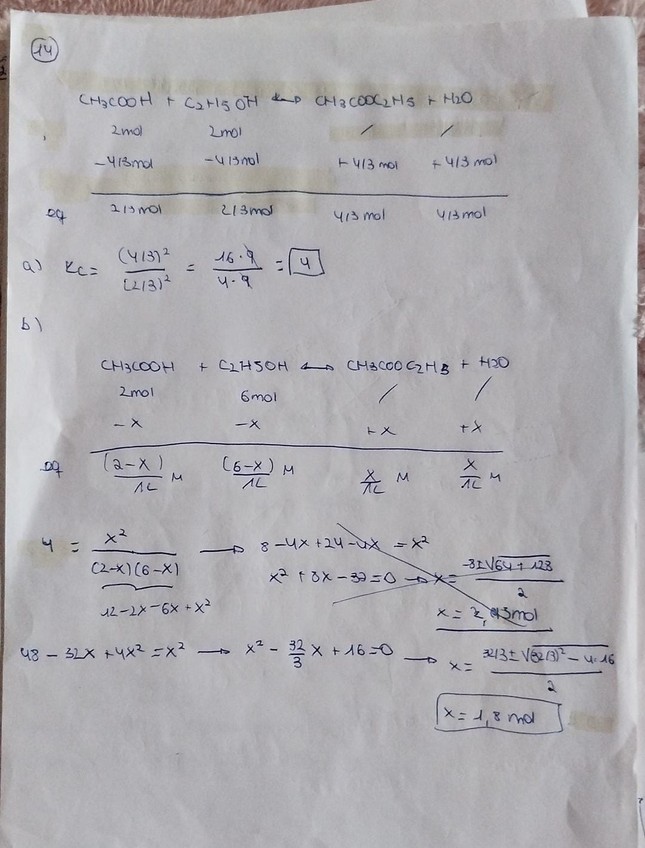 14
CH3COOH + C2H5OH ⟷ CH3COOC2H5 + H2O
2mol 2mol / /
-4/3mol -4/3mol +4/3mol +4/3mol
eq 2/3mol 2/3mol 4/3mol 4/3mol
a) Kc = (4/3)² / (2/3)² = 16·9 / 4·9 = 4
b)
CH3COOH + C2H5OH ⟷ CH3COOC2H5 + H2O
2mol 6mol / /
-x -x +x +x
eq (2-x)/1L M (6-x)/1L M x/1L M x/1L M
4 = x² / (2-x)(6-x) → 8-4x+24-4x = x²
12-2x-6x+x²
x²+8x-32=0 → x = -8±√64+128 / 2
x = 2,93mol
48-32x+4x²=x² → x² - 32/3 x + 16 = 0 → x = 32/3±√(32/3)²-4·16 / 2
x = 1,8 mol